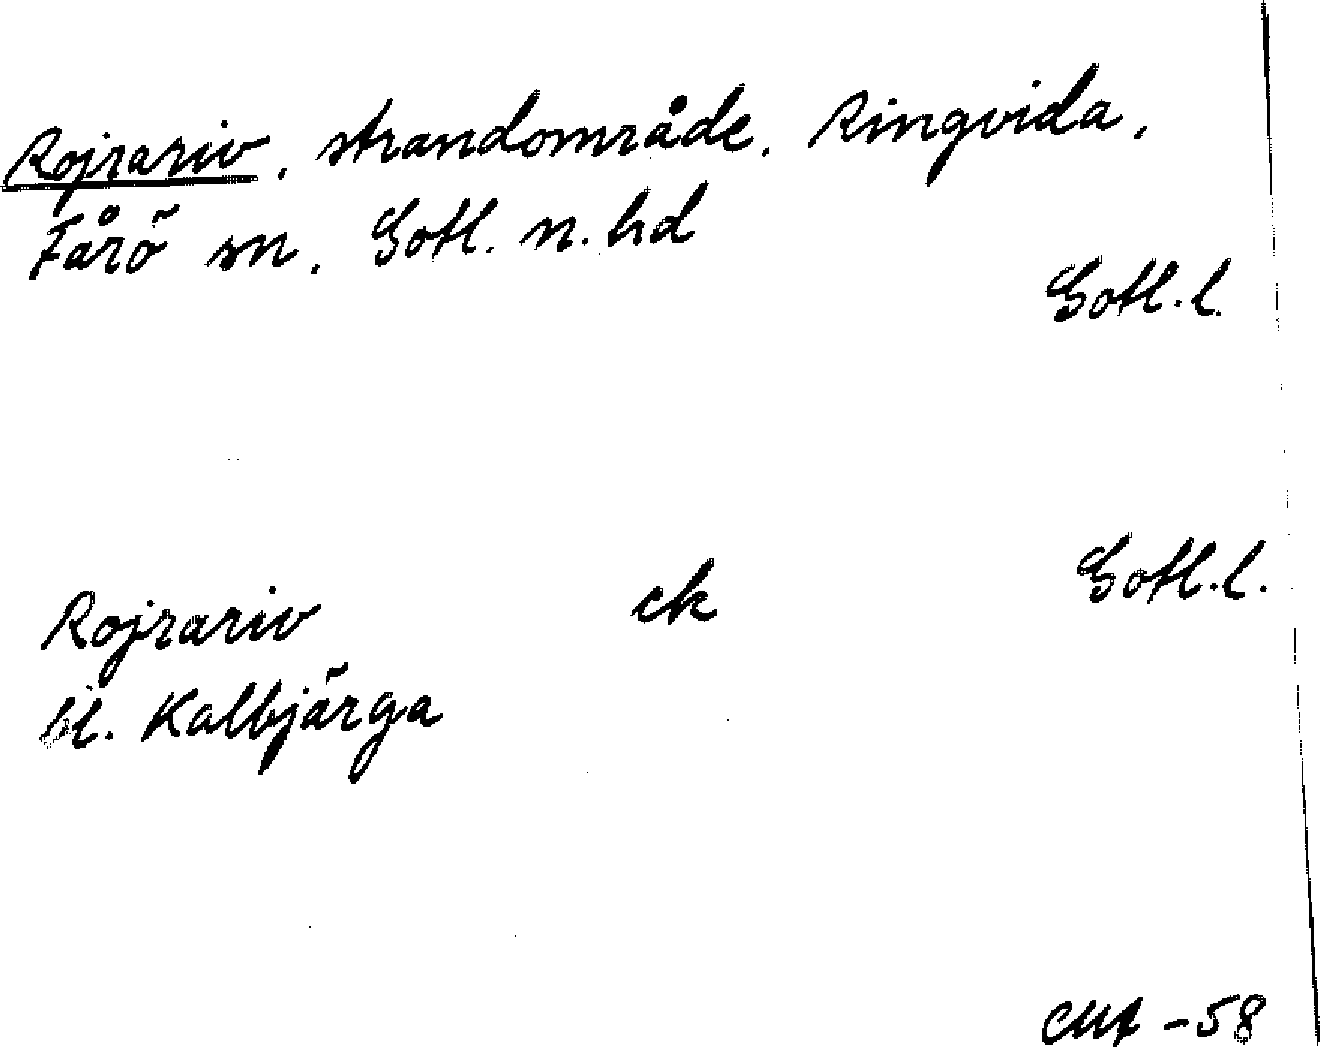 Rojrariv, strandområde, Ringvida,
Fårö sn, Gotl. n. hd
Gotl. l.
Rojrariv ek Gotl. l.
bl. Kalbjärga
-58